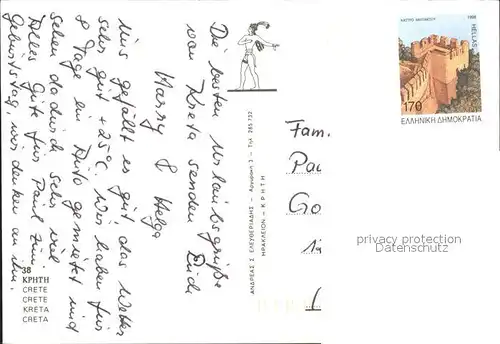 Die besten Urlaubsgrüße
von Kreta senden Euch
Harry & Helga
Uns gefällt es gut das Wetter
sehr gut +25°C. Wir haben für
8 Tage ein Auto gemietet und
sehen dadurch sehr viel
Alles Gute für Paul zum
Geburtstag, wir denken an ihn.
38
ΚΡΗΤΗ
CRETE
CRETE
KRETA
CRETA
ΑΝΔΡΕΑΣ Σ. ΕΛΕΥΘΕΡΙΑΔΗΣ - Αργυράκη 3 - Τηλ. 285.732
ΗΡΑΚΛΕΙΟΝ - ΚΡΗΤΗ
1998
HELLAS
170
ΕΛΛΗΝΙΚΗ ΔΗΜΟΚΡΑΤΙΑ
Fam.
privacy protection
Datenschutz